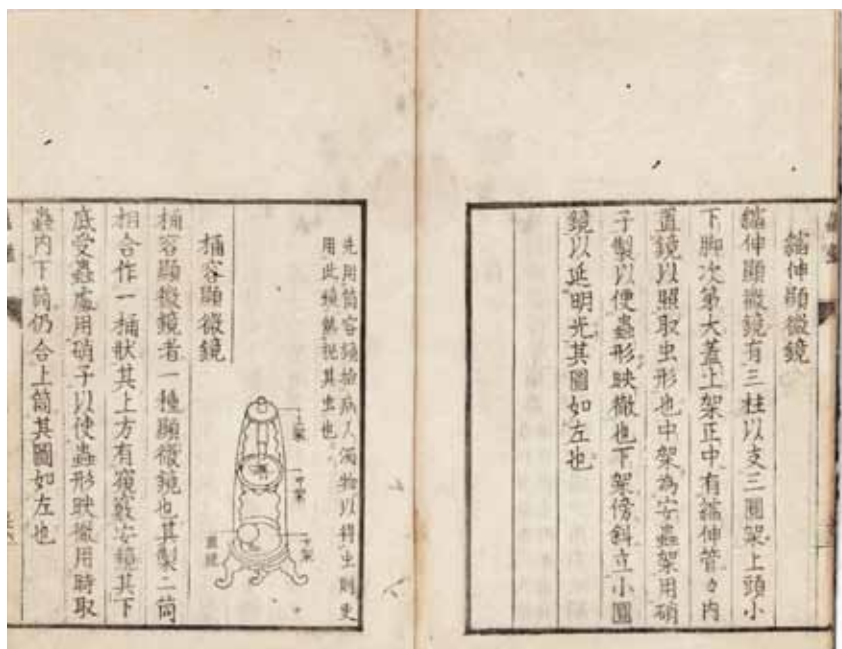 縮伸顯微鏡
縮伸顯微鏡有三柱以支三圓架上頭小
下脚次第大蓋上架正中有縮伸管々内
置鏡以照取虫形也中架為安蟲架用硝
子製以便蟲形映徹也下架傍斜立小圓
鏡以延明光其圖如左也
先用筒容鏡撿病人濁物以得虫則更
用此鏡熟視其虫也
上架
中架
下架
圓鏡
桶容顯微鏡
桶容顯微鏡者一種顯微鏡也其製二筒
相合作一桶狀其上方有窺竅安鏡其下
底受蟲處用硝子以使蟲形映徹用時取
蟲内下筒仍合上筒其圖如左也